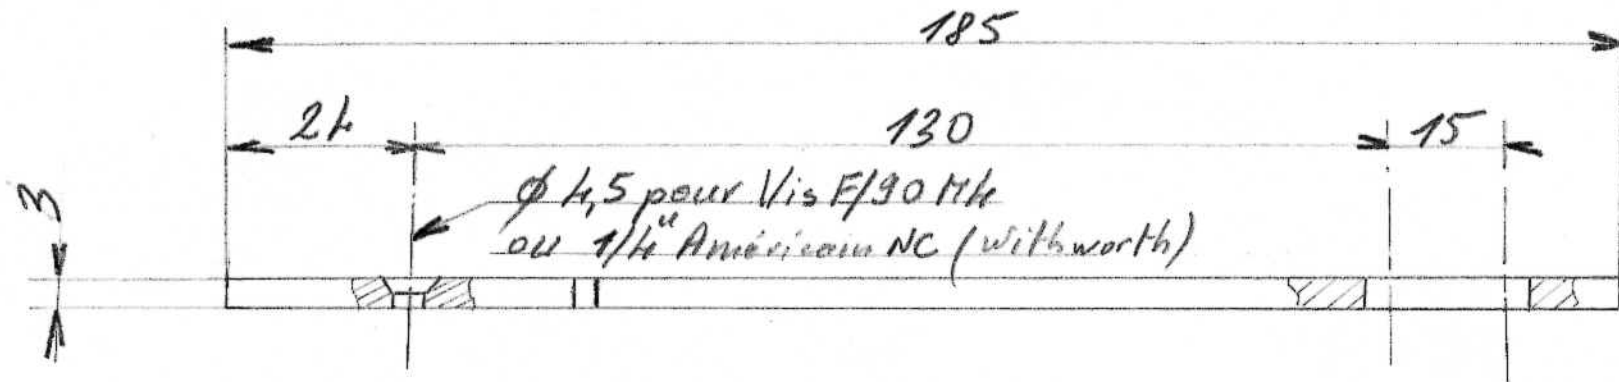 185
24
130
15
3
φ 4,5 pour Vis F/90 M4
ou 1/4" Américain NC (withworth)